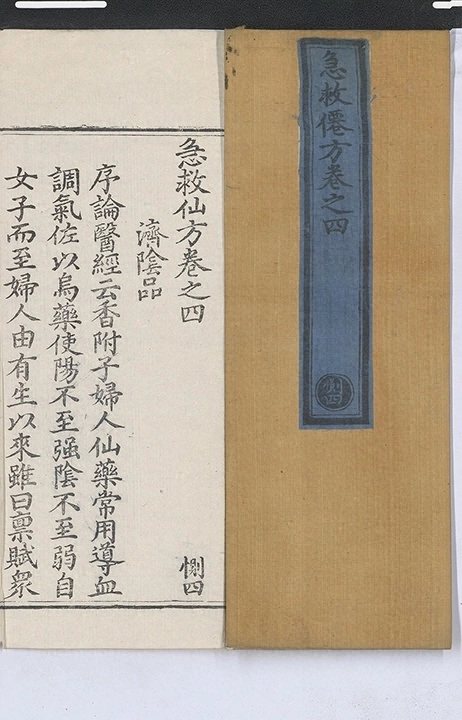 急救僊方卷之四
惻四
急救仙方卷之四
惻四
濟陰品
序論醫經云香附子婦人仙藥常用導血
調氣佐以烏藥使陽不至强陰不至弱自
女子而至婦人由有生以來雖曰禀賦衆